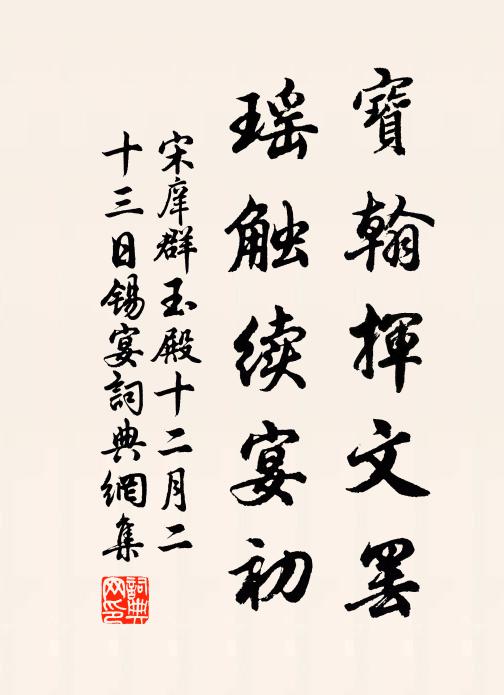 寶翰揮文罢
瑶触续宴初
宋庠群玉殿十二月二
十三日锡宴詞典網集
詞典网印